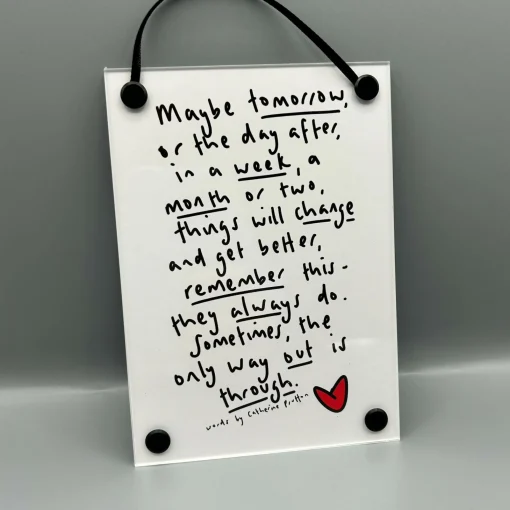 Maybe tomorrow,
or the day after,
in a week, a
month or two,
things will change
and get better,
remember this -
they always do.
Sometimes, the
only way out is
through.
words by Catherine Prutton